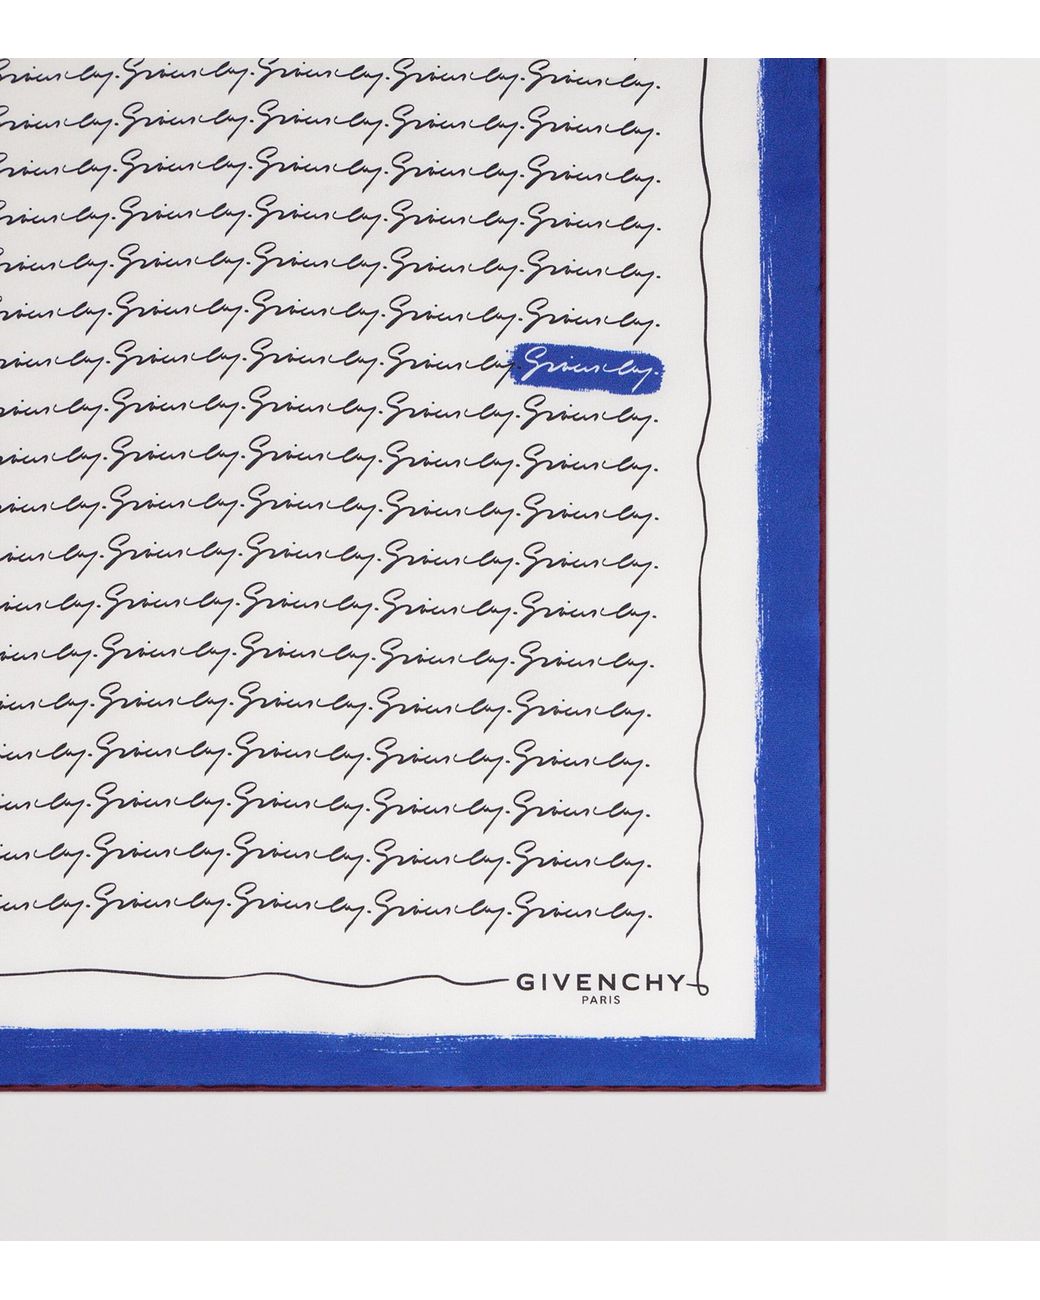 Givenchy. Givenchy. Givenchy. Givenchy. Givenchy.
Givenchy. Givenchy. Givenchy. Givenchy. Givenchy.
Givenchy. Givenchy. Givenchy. Givenchy. Givenchy.
Givenchy. Givenchy. Givenchy. Givenchy. Givenchy.
Givenchy. Givenchy. Givenchy. Givenchy. Givenchy.
Givenchy. Givenchy. Givenchy. Givenchy. Givenchy.
Givenchy. Givenchy. Givenchy. Givenchy. Givenchy.
Givenchy. Givenchy. Givenchy. Givenchy. Givenchy.
ivenchy. Givenchy. Givenchy. Givenchy. Givenchy.
ivenchy. Givenchy. Givenchy. Givenchy. Givenchy.
ivenchy. Givenchy. Givenchy. Givenchy. Givenchy.
ivenchy. Givenchy. Givenchy. Givenchy. Givenchy.
ivenchy. Givenchy. Givenchy. Givenchy. Givenchy.
ivenchy. Givenchy. Givenchy. Givenchy. Givenchy.
ivenchy. Givenchy. Givenchy. Givenchy. Givenchy.
ivenchy. Givenchy. Givenchy. Givenchy. Givenchy.
ivenchy. Givenchy. Givenchy. Givenchy. Givenchy.
ivenchy. Givenchy. Givenchy. Givenchy. Givenchy.
GIVENCHY
PARIS